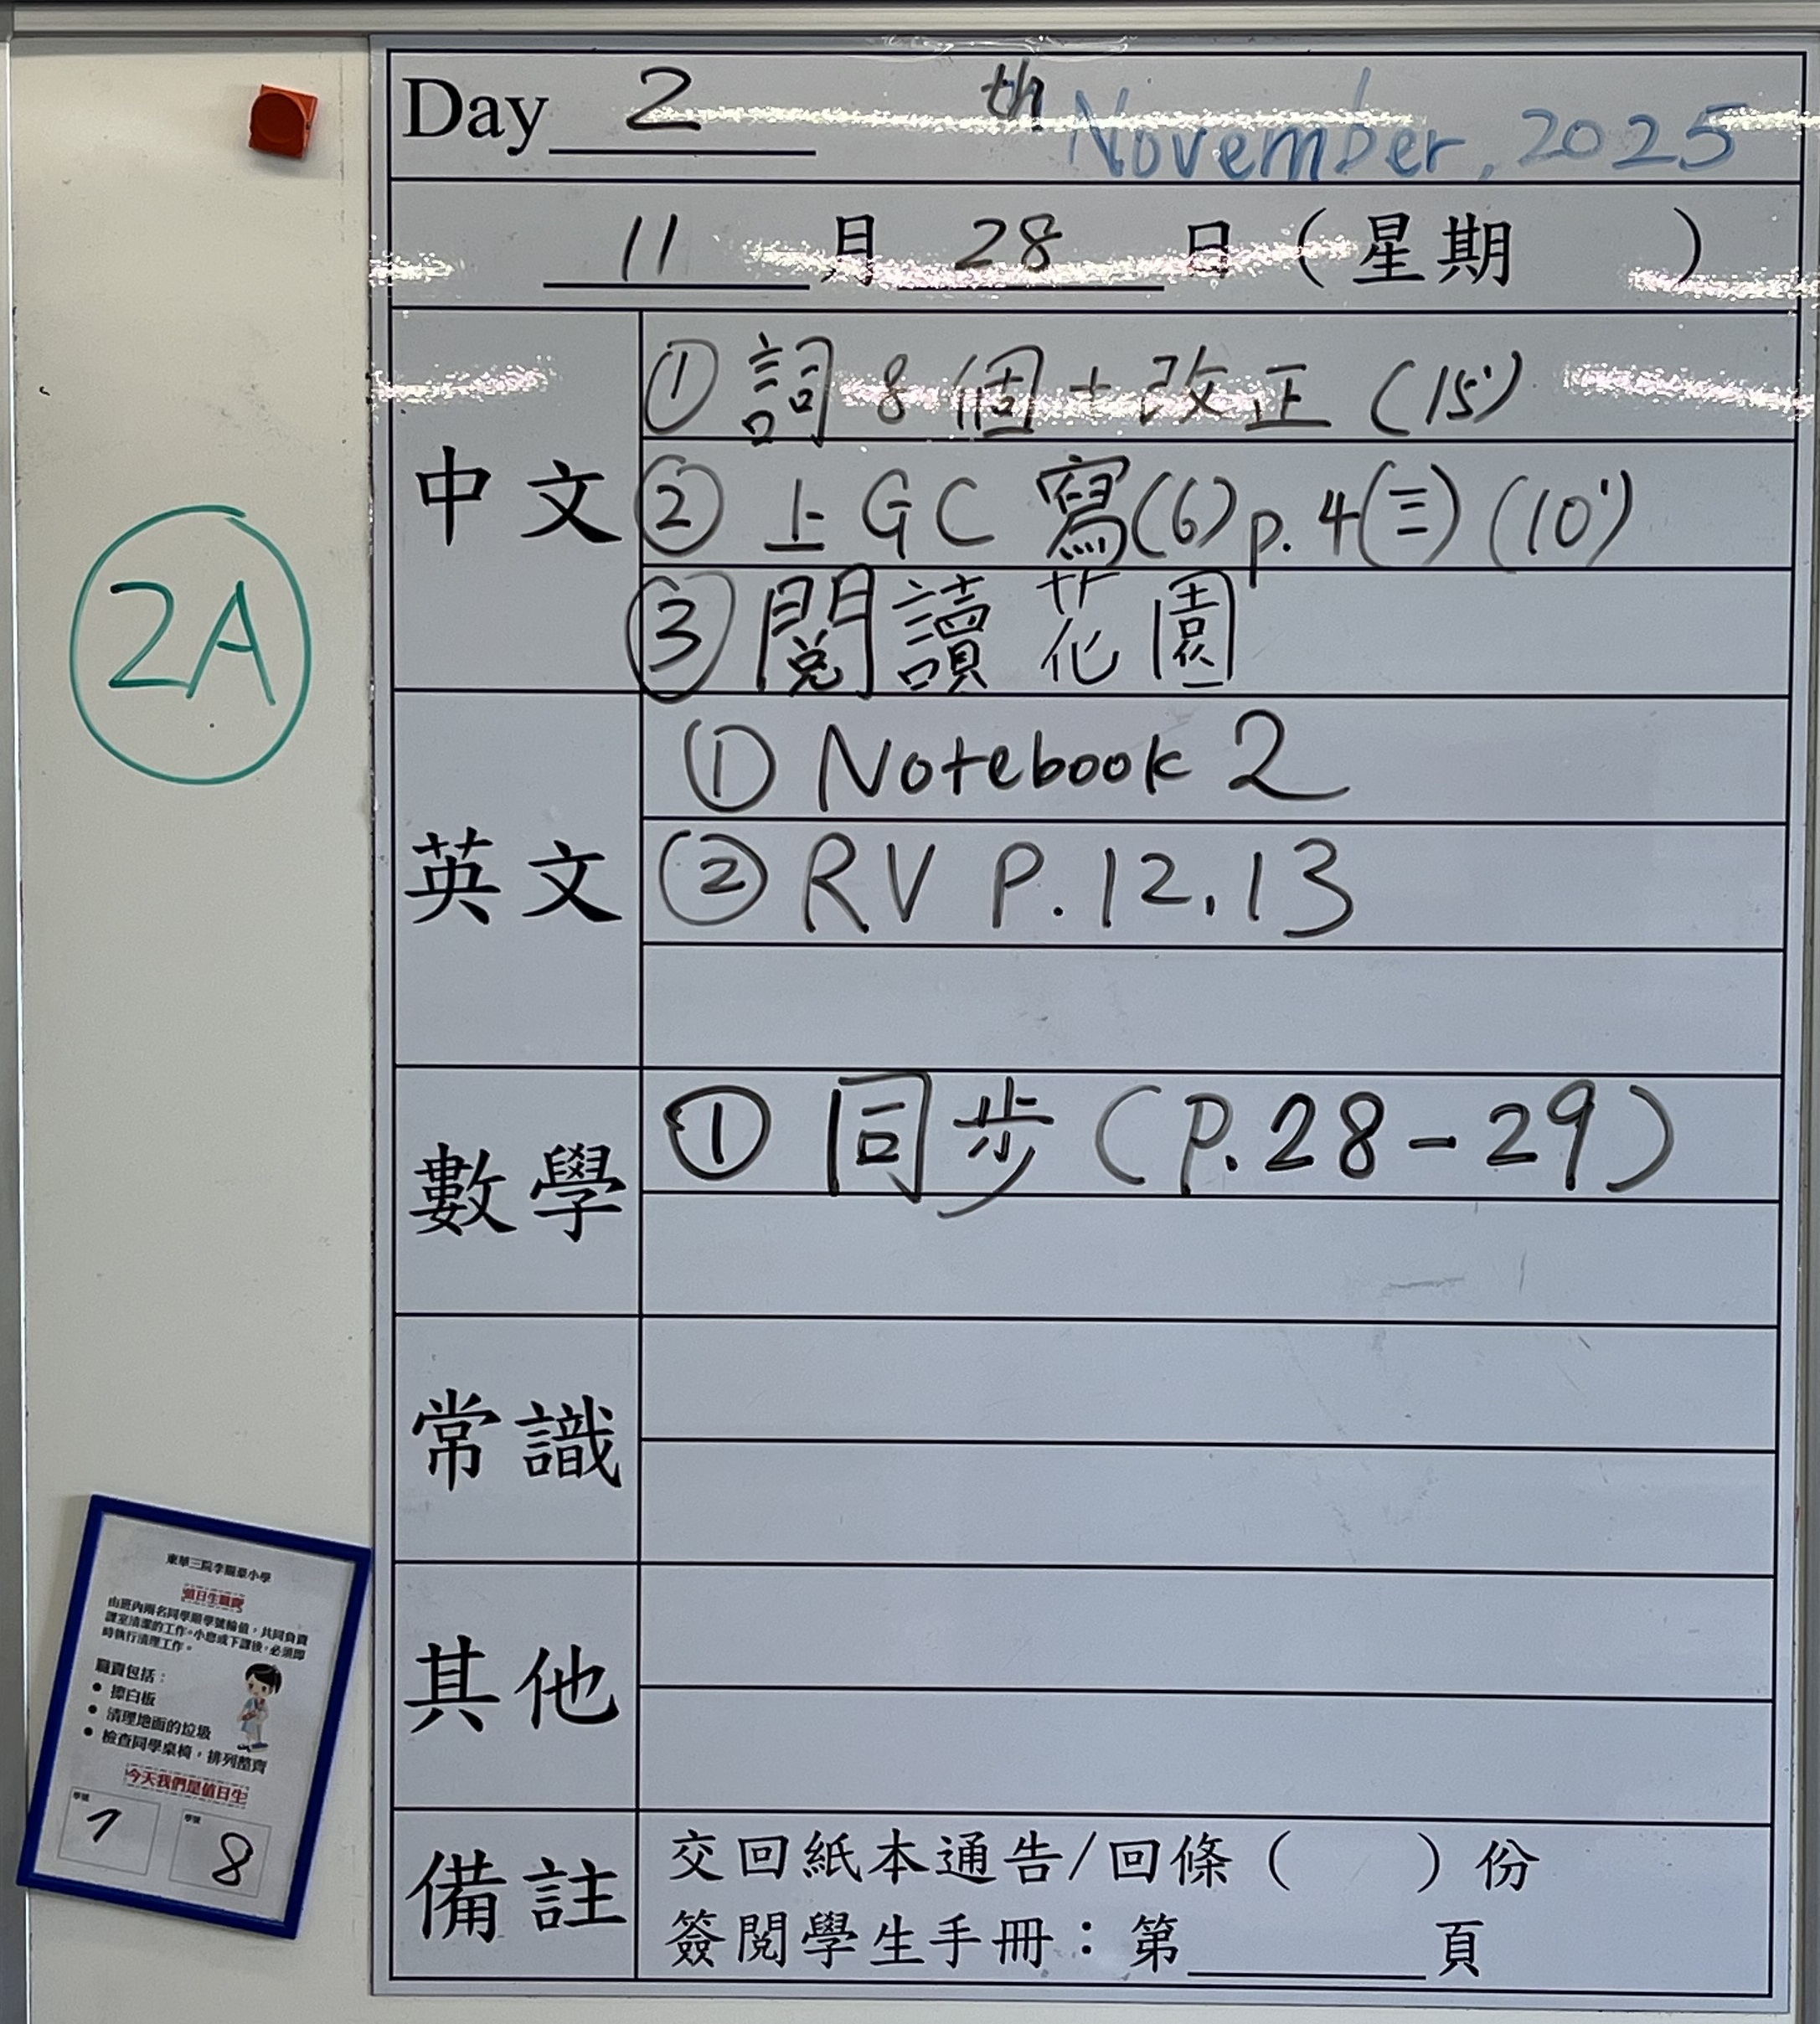 Day 2 th November, 2025
11 月 28 日 (星期 )
中文
① 詞 8 個 + 改正 (15')
② 上 GC 寫(6) p. 4(三) (10')
③ 閱讀花園
英文
① Notebook 2
② RV P. 12, 13
數學
① 同步 (P. 28 - 29)
常識
其他
備註
交回紙本通告/回條 ( ) 份
簽閱學生手冊：第 頁
2A
東華三院李賜豪小學
值日生職責
由班內兩名同學順學號輪值，共同負責
課室清潔的工作。小息或下課後，必須即
時執行清理工作。
職責包括：
● 擦白板
● 清理地面的垃圾
● 檢查同學桌椅，排列整齊
今天我們是值日生
學號 學號
7 8